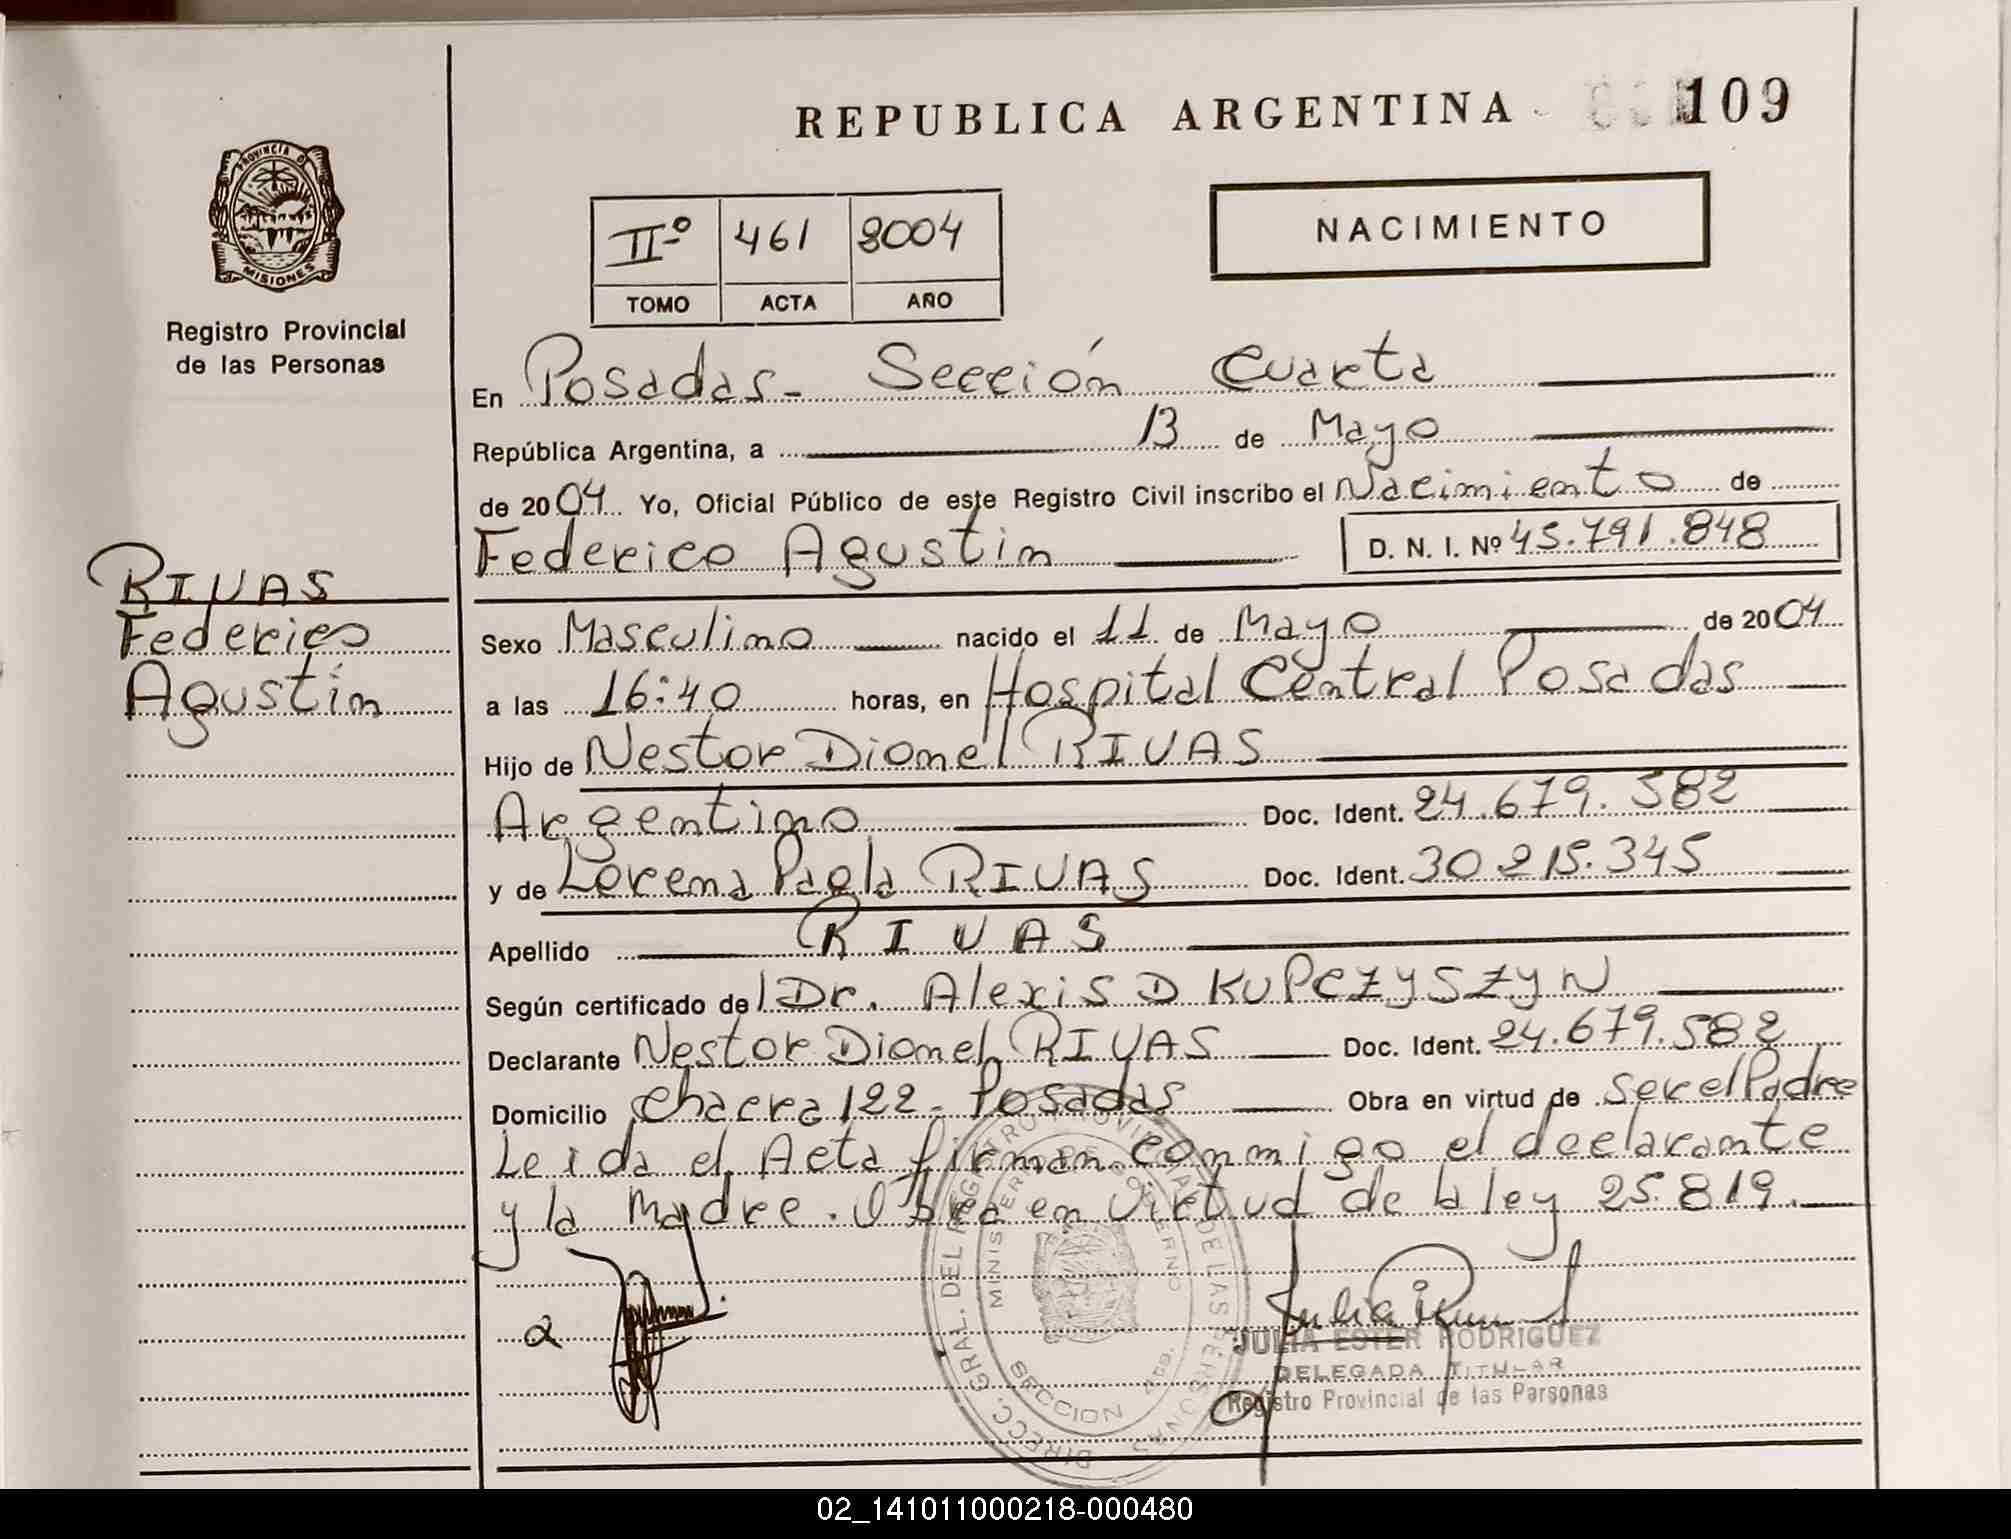 REPUBLICA ARGENTINA
109
PROVINCIA D
MISIONES
Registro Provincial
de las Personas
IIº 461 2004
TOMO ACTA AÑO
NACIMIENTO
En Posadas - Sección Cuarta
República Argentina, a 13 de Mayo
de 2004 Yo, Oficial Público de este Registro Civil inscribo el Nacimiento de
Federico Agustin D. N. I. Nº 45.791.848
RIVAS
Federico
Agustín
Sexo Masculino nacido el 11 de Mayo de 2004
a las 16:40 horas, en Hospital Central Posadas
Hijo de Nestor Dionel RIVAS
Argentino Doc. Ident. 24.679.582
y de Lorena Paola RIVAS Doc. Ident. 30 215.345
Apellido RIVAS
Según certificado del Dr. Alexis D KUPCZYSZYN
Declarante Nestor Dionel RIVAS Doc. Ident. 24.679.582
Domicilio Chacra 122 - Posadas Obra en virtud de ser el Padre
Leida el Acta firman conmigo el declarante
y la Madre. Obra en Virtud de la ley 25.819.
DIRECC. GRAL. DEL REGISTRO PROVINCIAL DE LAS PERSONAS
SECCION 4ta.
JULIA ESTER RODRIGUEZ
DELEGADA TITULAR
Registro Provincial de las Personas
02_141011000218-000480